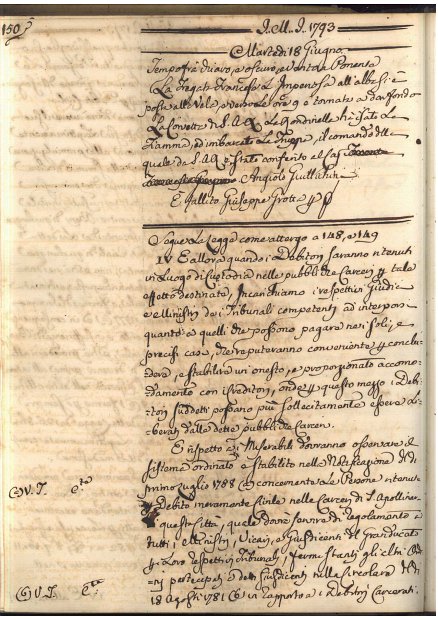 150
I. M. I. 1793
Martedì 18 Giugno.
Tempo frà chiaro, e oscuro, e vento da Ponente
La Fregata Francese L'Imperiosa all'alba si è
posta alla Vela, e verso le ore 9 è tornata a dar fondo
La Corvetta di S. A. R. Le Rondinelle hà issato La
Fiamma, ed imbarcato Le Truppe, il comando della
quale da S. A. R. è stato conferito al Cap.
Angiolo
E Fallito Giuseppe Grotta
Segue La Legge come attergo a 148, e 149
IV E allora quando i Debitori saranno ritenuti
in Luogo di Custodia nelle pubbliche Carceri p tale
effetto destinate, Incarichiamo i respettivi Giudici
e Ministri dei Tribunali competenti ad interporsi
quanto a quelli che possono pagare nei soli, e
precisi casi, che reputeranno conveniente p conclu-
dere, e stabilire un onesto, e proporzionato accomo-
damento con i Creditori, onde p questo mezzo i Debi-
tori suddetti possano più sollecitamente essere Li-
berati dalle dette pubbliche Carceri.
E rispetto ai Miserabili dovranno osservare il
sistema ordinato e stabilito nella Notificazione del dì
primo Luglio 1788 concernente Le Persone ritenute
p Debito meramente Civile nelle Carceri di
questa Città, quale dovrà servire di regolamento a
tutti i Ministri, Vicarj, e Giusdicenti del Granducato
p i Loro respettivi Tribunali, fermi stanti gli altri Or-
dini partecipati a detti Giusdicenti nella Circolare del dì
18 Agosto 1781 in rapporto a i Debitori Carcerati.